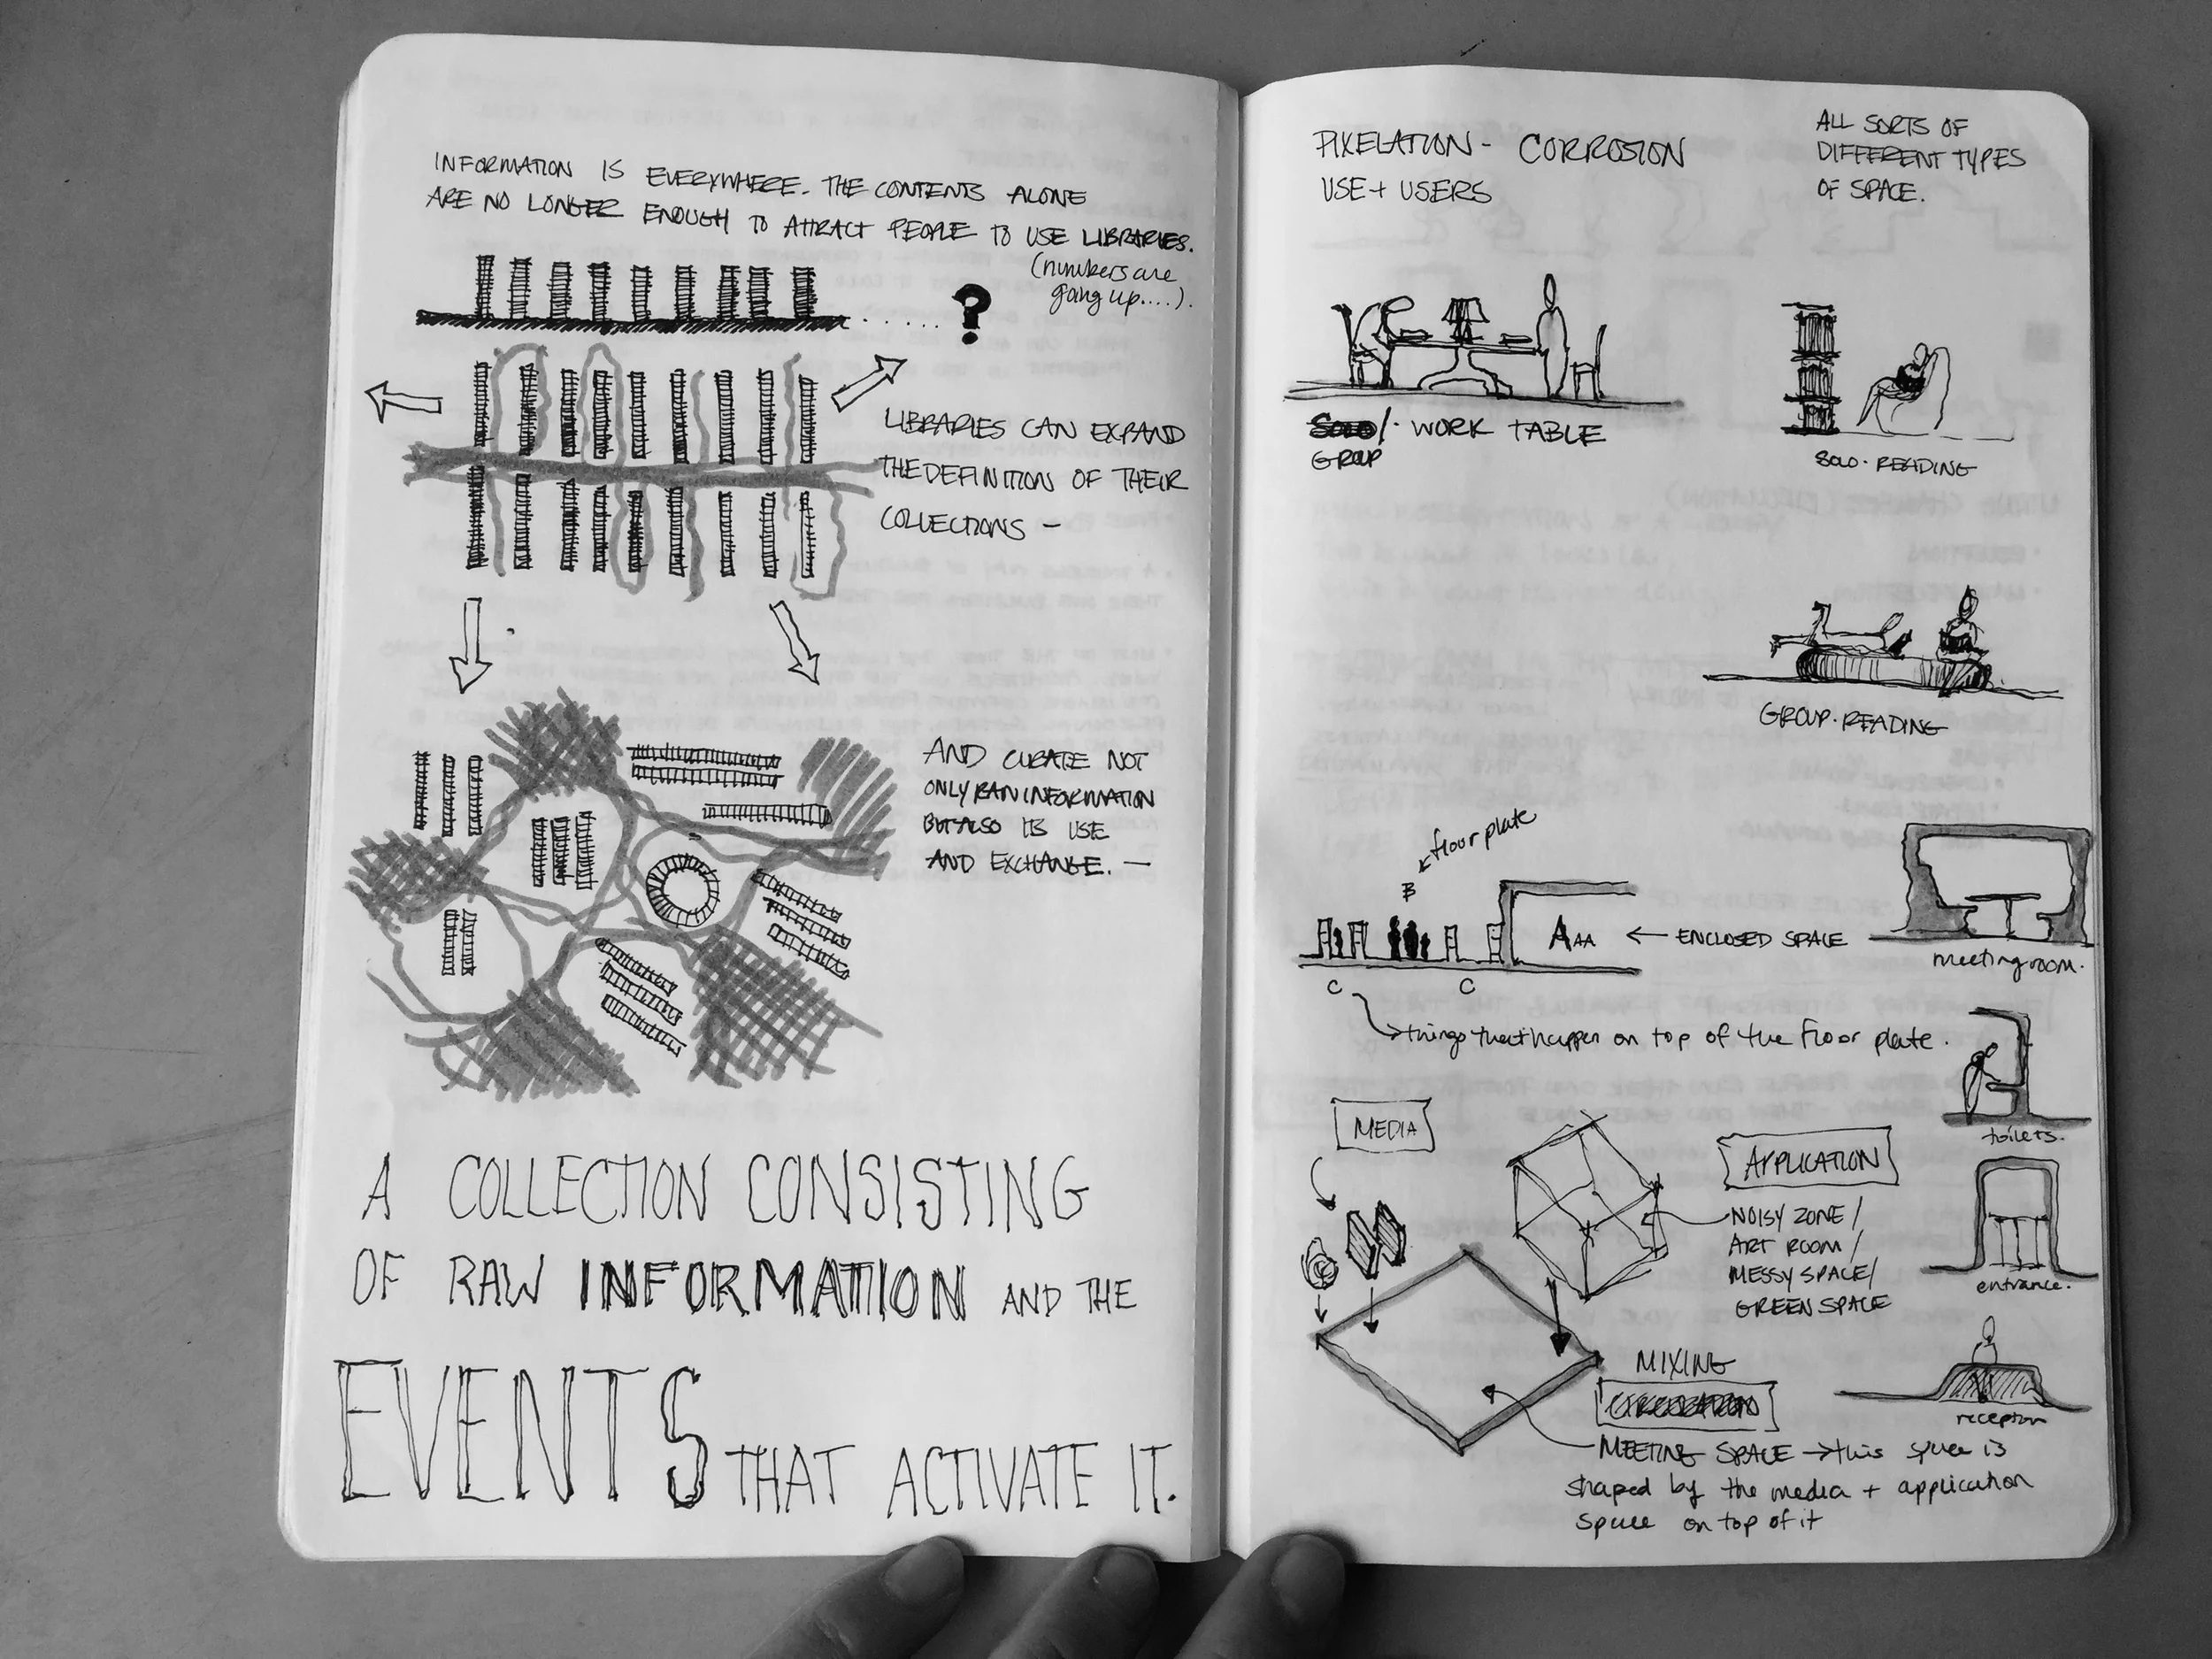 INFORMATION IS EVERYWHERE. THE CONTENTS ALONE
ARE NO LONGER ENOUGH TO ATTRACT PEOPLE TO USE LIBRARIES.
(numbers are
going up....).
?
LIBRARIES CAN EXPAND
THE DEFINITION OF THEIR
COLLECTIONS —
AND CURATE NOT
ONLY RAW INFORMATION
BUT ALSO ITS USE
AND EXCHANGE. —
A COLLECTION CONSISTING
OF RAW INFORMATION AND THE
EVENTS THAT ACTIVATE IT.
PIXELATION - CORROSION
USE + USERS
ALL SORTS OF
DIFFERENT TYPES
OF SPACE.
SOLO/· WORK TABLE
GROUP
SOLO · READING
GROUP · READING
floor plate
B
AAA ← ENCLOSED SPACE
C C
things that happen on top of the floor plate.
meeting room.
toilets.
entrance.
reception
MEDIA
APPLICATION
NOISY ZONE /
ART ROOM /
MESSY SPACE /
GREEN SPACE
MIXING
MEETING SPACE → this space is
shaped by the media + application
space on top of it